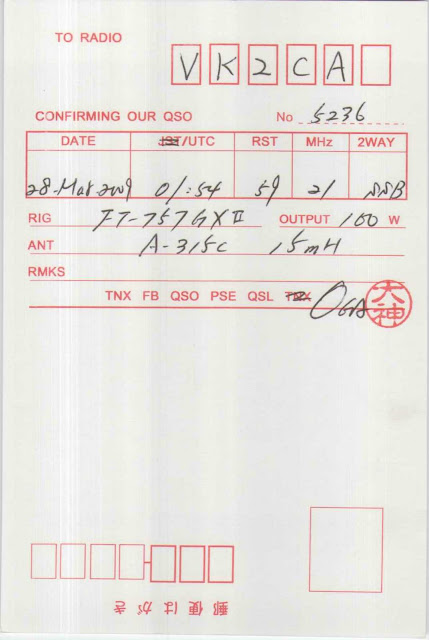 TO RADIO
VK2CA
CONFIRMING OUR QSO No 5236
DATE JST/UTC RST MHz 2WAY
28-Mar 2009 01:54 59 21 SSB
RIG FT-757GXII OUTPUT 100 W
ANT A-315C 15mH
RMKS
TNX FB QSO PSE QSL TNX
大神
郵便はがき